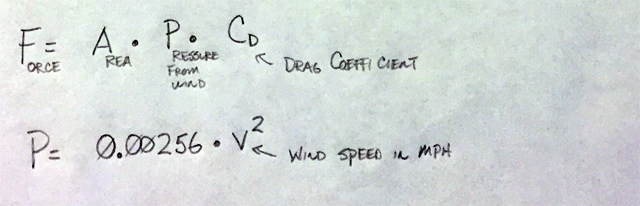 F= A • P • CD
ORCE REA RESSURE FROM WIND DRAG COEFFICIENT
P= 0.00256 • V² WIND SPEED IN MPH